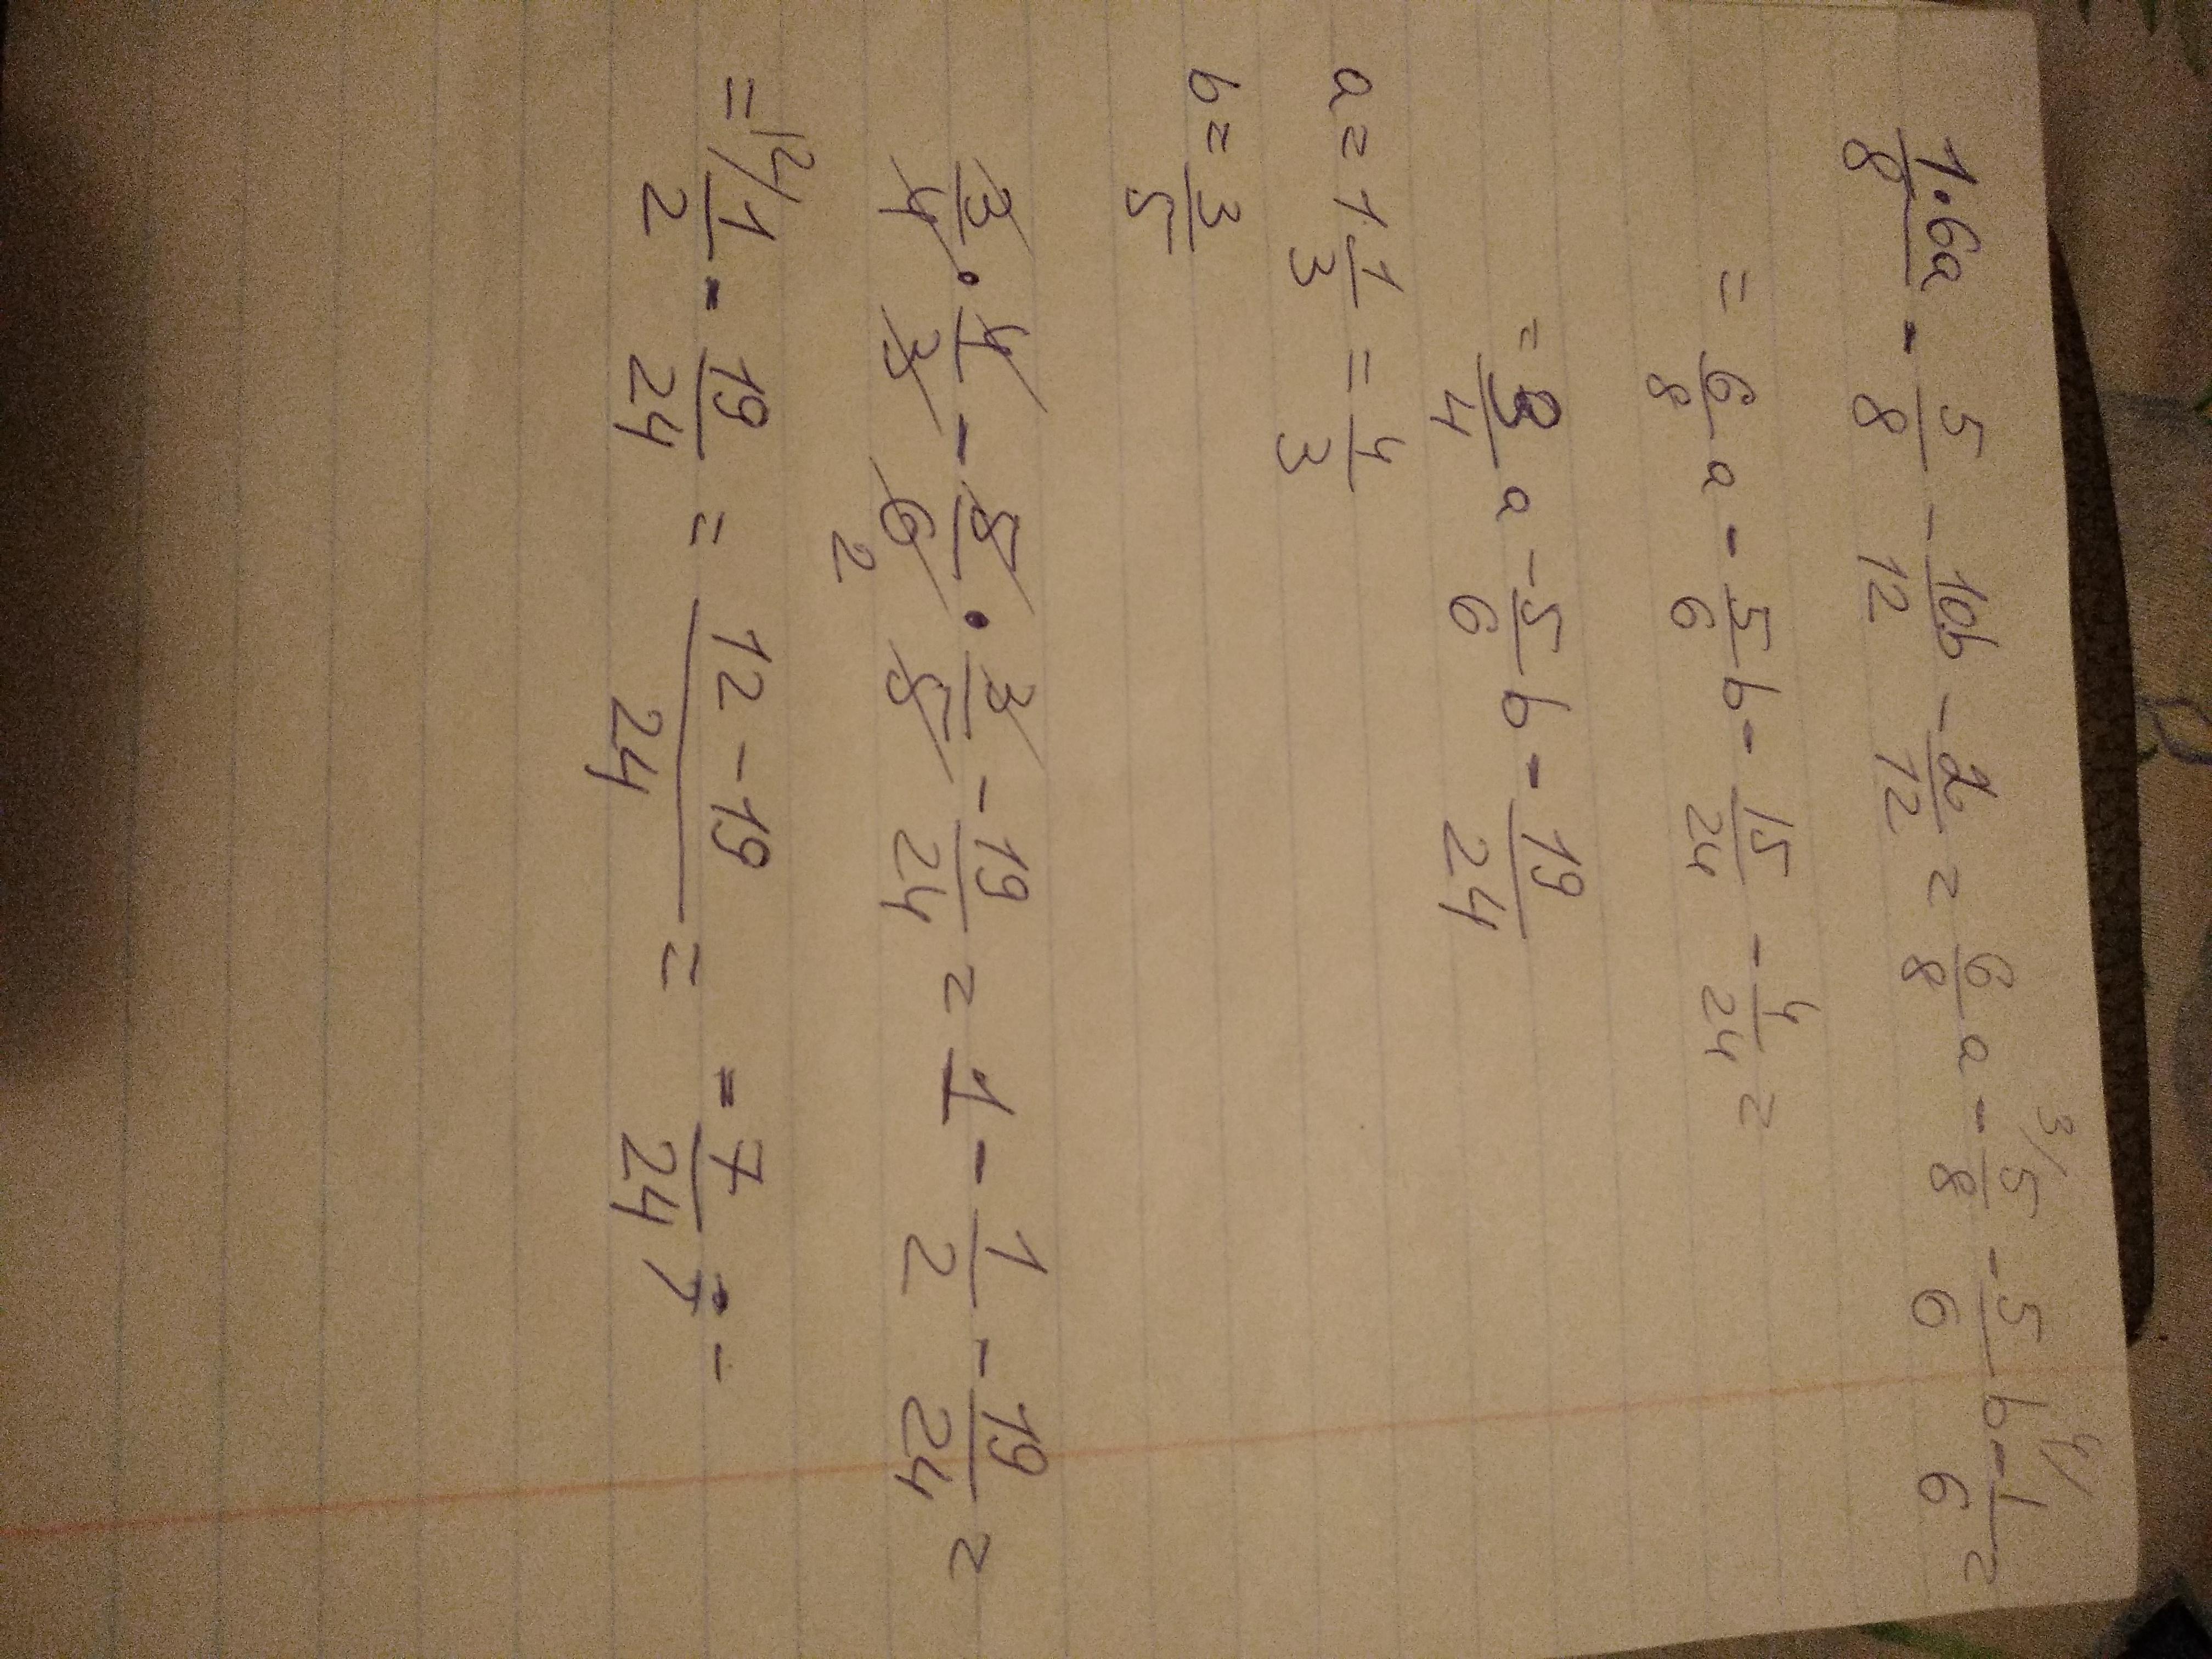 1·6a/8 - 5/8 - 10b/12 - 2/12 = 6/8 a - 3/ 5/8 - 5/6 b - 4/ 1/6 =
= 6/8 a - 5/6 b - 15/24 - 4/24 =
= 3/4 a - 5/6 b - 19/24
a = 1 1/3 = 4/3
b = 3/5
3/4 · 4/3 - 5/6 2 · 3/5 - 19/24 = 1 - 1/2 - 19/24 =
= 12/ 1/2 - 19/24 = 12 - 19/24 = = 7/24